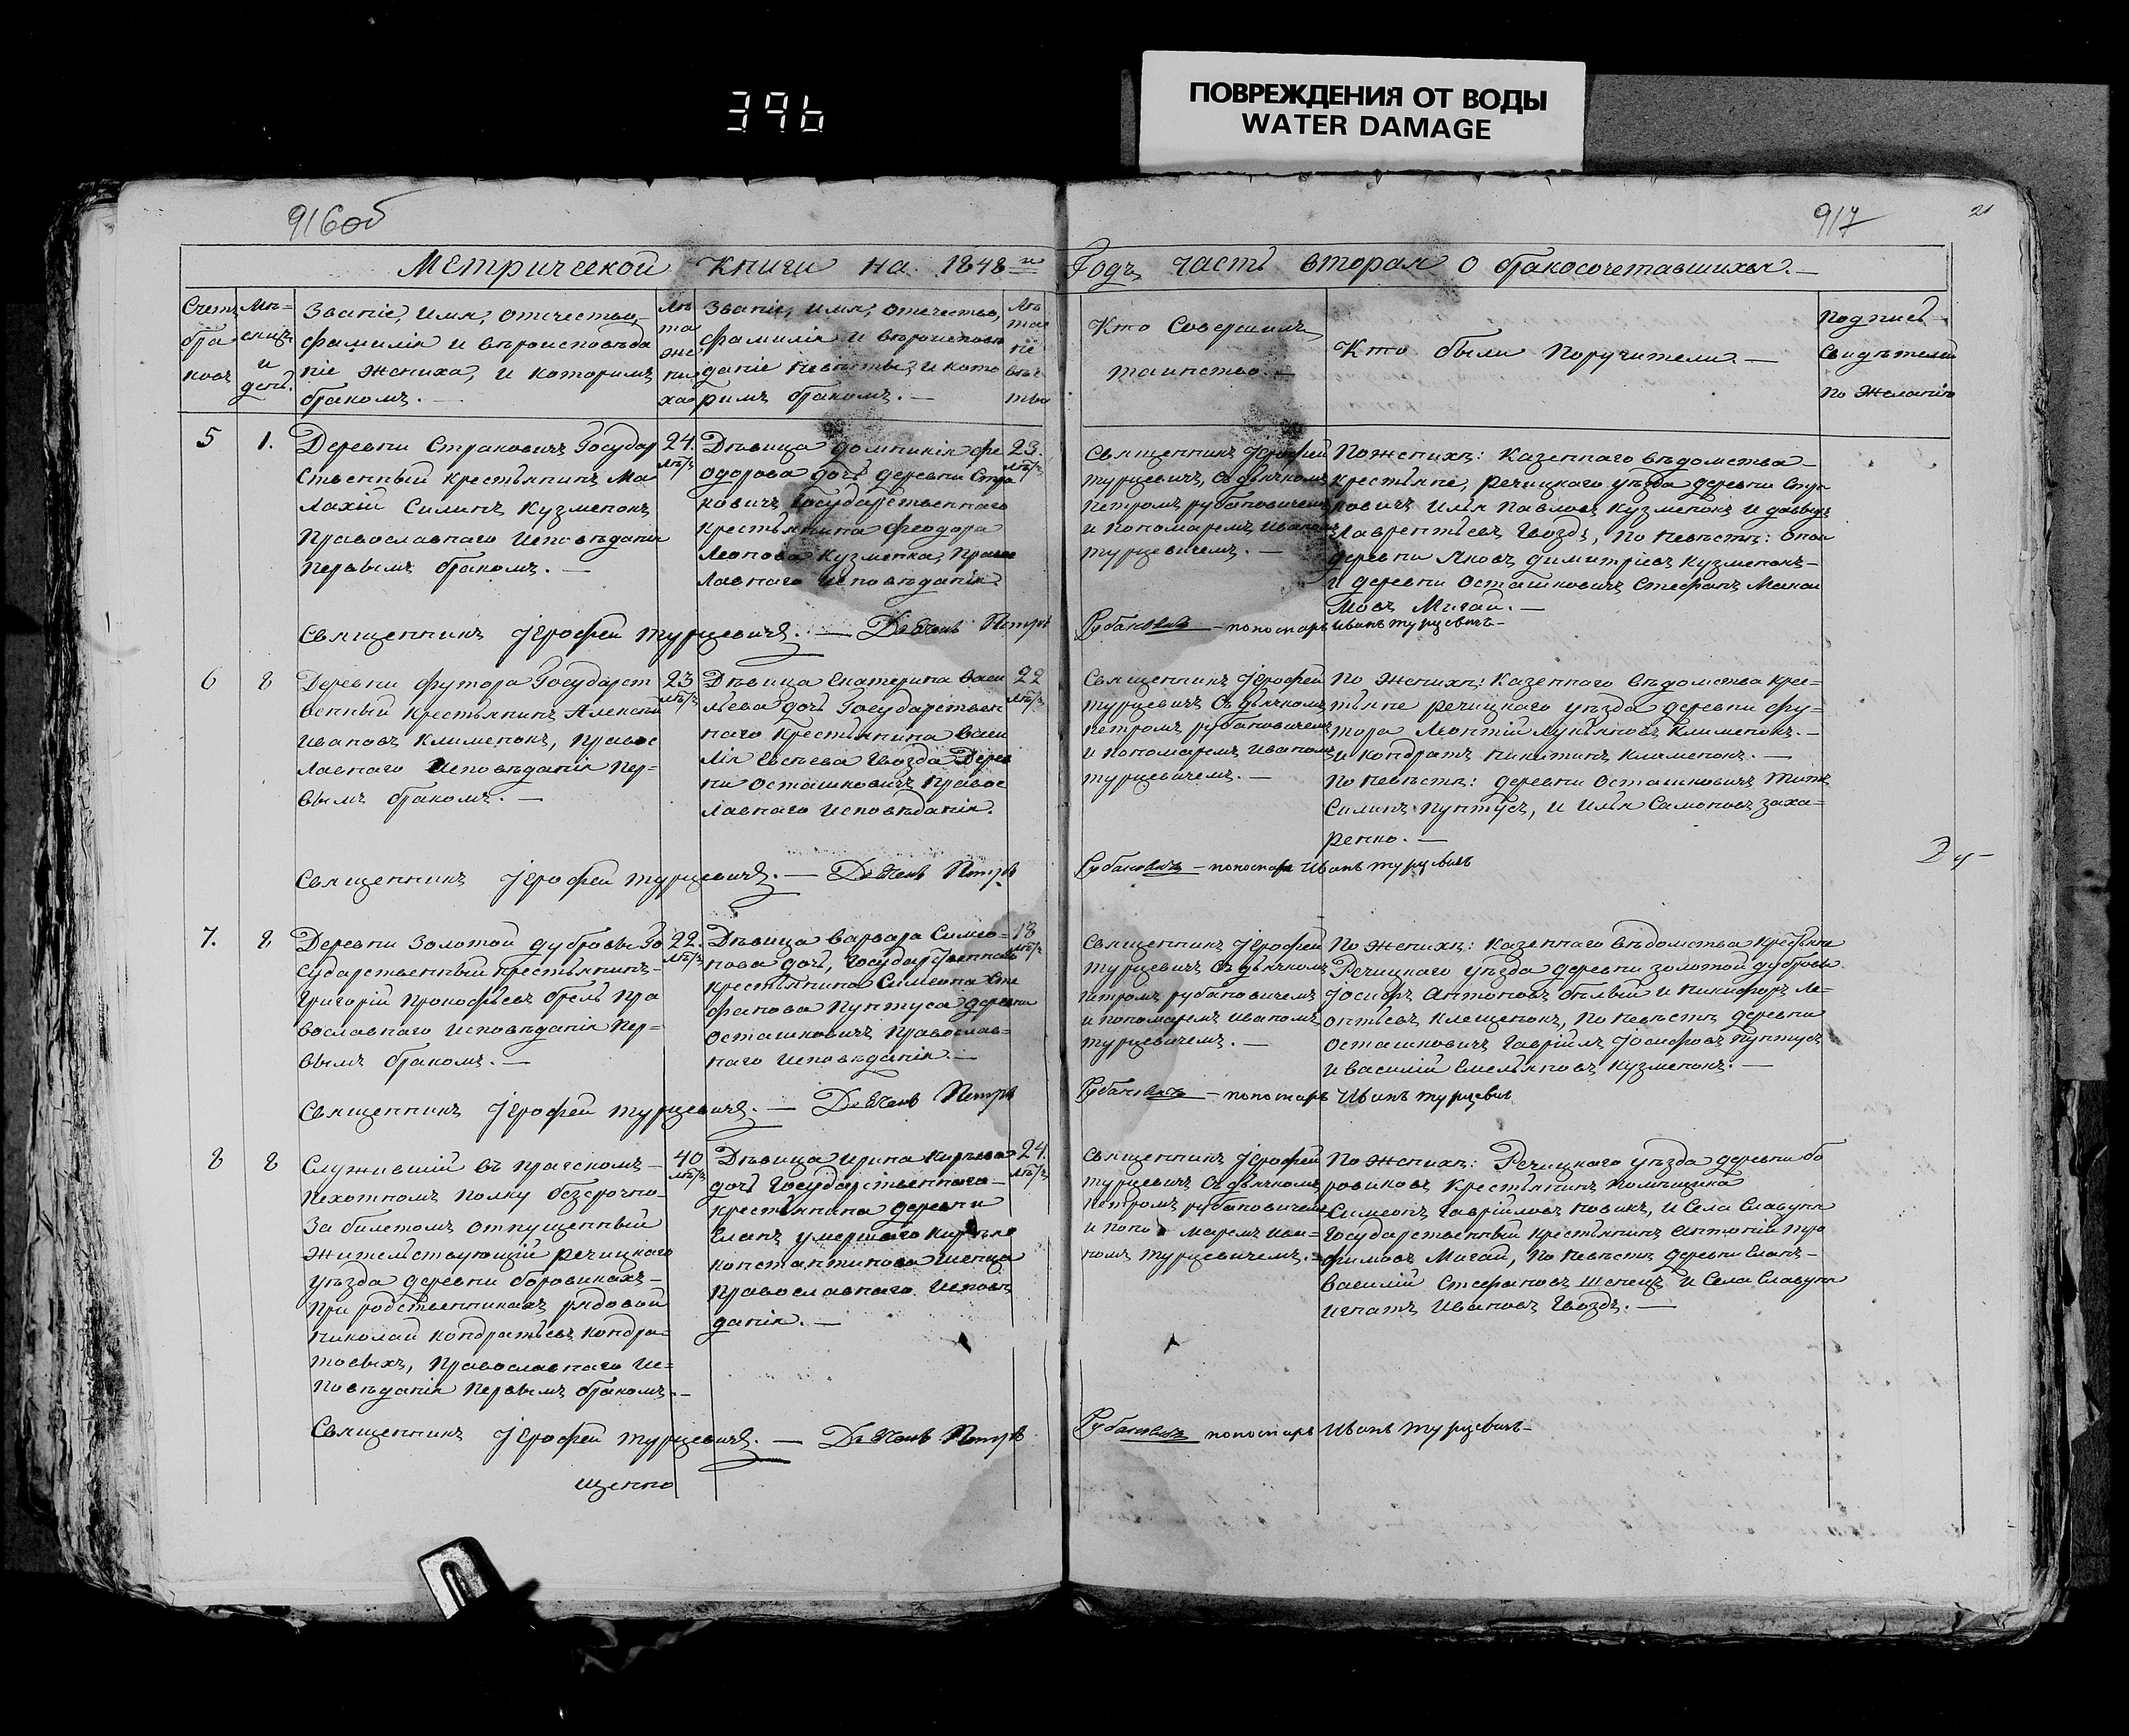 396
ПОВРЕЖДЕНИЯ ОТ ВОДЫ
WATER DAMAGE
916об
917
21
Метрической книги на 1848й Годъ часть вторая о бракосочетавшихся.—
Счетъ браковъ
Мѣсяцъ и день.
Званіе, имя, отчество,
фамилія и вѣроисповѣда
ніе жениха, и которимъ
бракомъ.—
Лѣта жениха
Званіе, имя, отечество,
фамилія и вѣроисповѣ
даніе невѣсты, и кото
римъ бракомъ.—
Лѣта невѣсты
Кто Совершилъ
таинство.—
Кто были Поручители.—
Подпись
Свидѣтелей
по желанію
5
1.
Деревни Страковичъ Государ
ственный крестьянинъ Ма
лахій Силинъ Кузменокъ
Православнаго Исповѣданія
первымъ бракомъ.—
24.
лѣтъ
Дѣвица Домникія Фе
одорова дочь деревни Стра
ковичъ Государственнаго
крестьянина Феодора
Леонова Кузменка, Правос
лавнаго Исповѣданія
23.
лѣтъ
Священникъ Іерофей
Турцевичъ, съ дьячкомъ
Петромъ Рубановичемъ
и пономаремъ Иваномъ
Турцевичемъ.—
По женихѣ: Казеннаго вѣдомства
крестьяне, Речицкаго уѣзда деревни Стра
ковичъ Илья Павловъ Кузменокъ и Давыдъ
Лаврентьевъ Гвоздь, по невѣстѣ: оной
деревни Яковъ Димитріевъ Кузменокъ
и деревни Осташковичъ Стефанъ
Мигай.—
Священникъ Іерофей Турцевичъ.— Дьячекъ Петръ
Рубановичъ — пономарь Иванъ Турцевичъ
6
8
Деревни Футора Государст
венный крестьянинъ Алексѣй
Ивановъ Клименокъ, Правос
лавнаго Исповѣданія пер=
вымъ бракомъ.—
23
лѣтъ
Дѣвица Екатерина Васи
льева дочь Государствен
наго крестьянина Васи
лія Евсѣева Гвозда Дерев
ни Осташковичъ Правос
лавнаго Исповѣданія.
22
лѣтъ
Священникъ Іерофей
Турцевичъ съ дьячкомъ
Петромъ Рубановичемъ
и пономаремъ Иваномъ
Турцевичемъ.—
По женихѣ: Казеннаго вѣдомства крес=
тьяне Речицкаго уѣзда деревни Фу=
тора Леонтій Лукьяновъ Клименокъ.—
и Кондратъ Никитинъ Клименокъ.—
По невѣстѣ: деревни Осташковичъ Титъ
Силинъ Пунтусъ, и Илья Самоновъ Заха=
ренко.—
Священникъ Іерофей Турцевичъ.— Дьячекъ Петръ
Рубановичъ — пономарь Иванъ Турцевичъ
7.
8
Деревни Золотой Дубровы Го
сударственный крестьянинъ
Григорій Прокофьевъ Брель Пра
вославнаго Исповѣданія пер=
вымъ бракомъ.—
22.
лѣтъ
Дѣвица Варвара Симео=
нова дочь, Государственнаго
крестьянина Симеона Сте
фанова Пунтуса деревни
Осташковичъ Православ=
наго Исповѣданія.—
18
лѣтъ
Священникъ Іерофей
Турцевичъ съ дьячкомъ
Петромъ Рубановичемъ
и пономаремъ Иваномъ
Турцевичемъ.—
По женихѣ: Казеннаго вѣдомства крестьяне
Речицкаго уѣзда деревни Золотой Дубровы
Іосифъ Антоновъ Бѣлый и Никифоръ Ле=
онтьевъ Клещенокъ, по невѣстѣ деревни
Осташковичъ Гавріилъ Іосифовъ Пунтусъ
и Василій Емельяновъ Кузменокъ.—
Священникъ Іерофей Турцевичъ.— Дьячекъ Петръ
Рубановичъ — пономарь Иванъ Турцевичъ
8
8
Служившій въ Пражскомъ
пехотномъ полку безсрочно
за билетомъ отпущенный
жительствующій Речицкаго
уѣзда деревни Боровикахъ
при родственникахъ рядовой
Николай Кондратьевъ Кондра=
товыхъ, Православнаго Ис=
повѣданія первымъ бракомъ.—
40
лѣтъ
Дѣвица Ирина Кирѣева
дочь Государственнаго
крестьянина деревни
Еланъ умершаго
Константинова Шепца
Православнаго Исповѣ
данія.—
24.
лѣтъ
Священникъ Іерофей
Турцевичъ съ дьячкомъ
Петромъ Рубановичемъ
и поно маремъ Ива=
номъ Турцевичемъ.—
По женихѣ: Речицкаго уѣзда деревни Бо
ровиковъ крестьянинъ помѣщика
Симеонъ Гавріиловъ Новикъ, и Села
Государственный крестьянинъ Антоній Тро
фимовъ Мигай, по невѣстѣ деревни Еланъ
Василій Стефановъ Шепецъ и Села
Игнатъ Ивановъ Гвоздь.—
Священникъ Іерофей Турцевичъ.— Дьячекъ Петръ
Рубановичъ пономарь Иванъ Турцевичъ
щенно